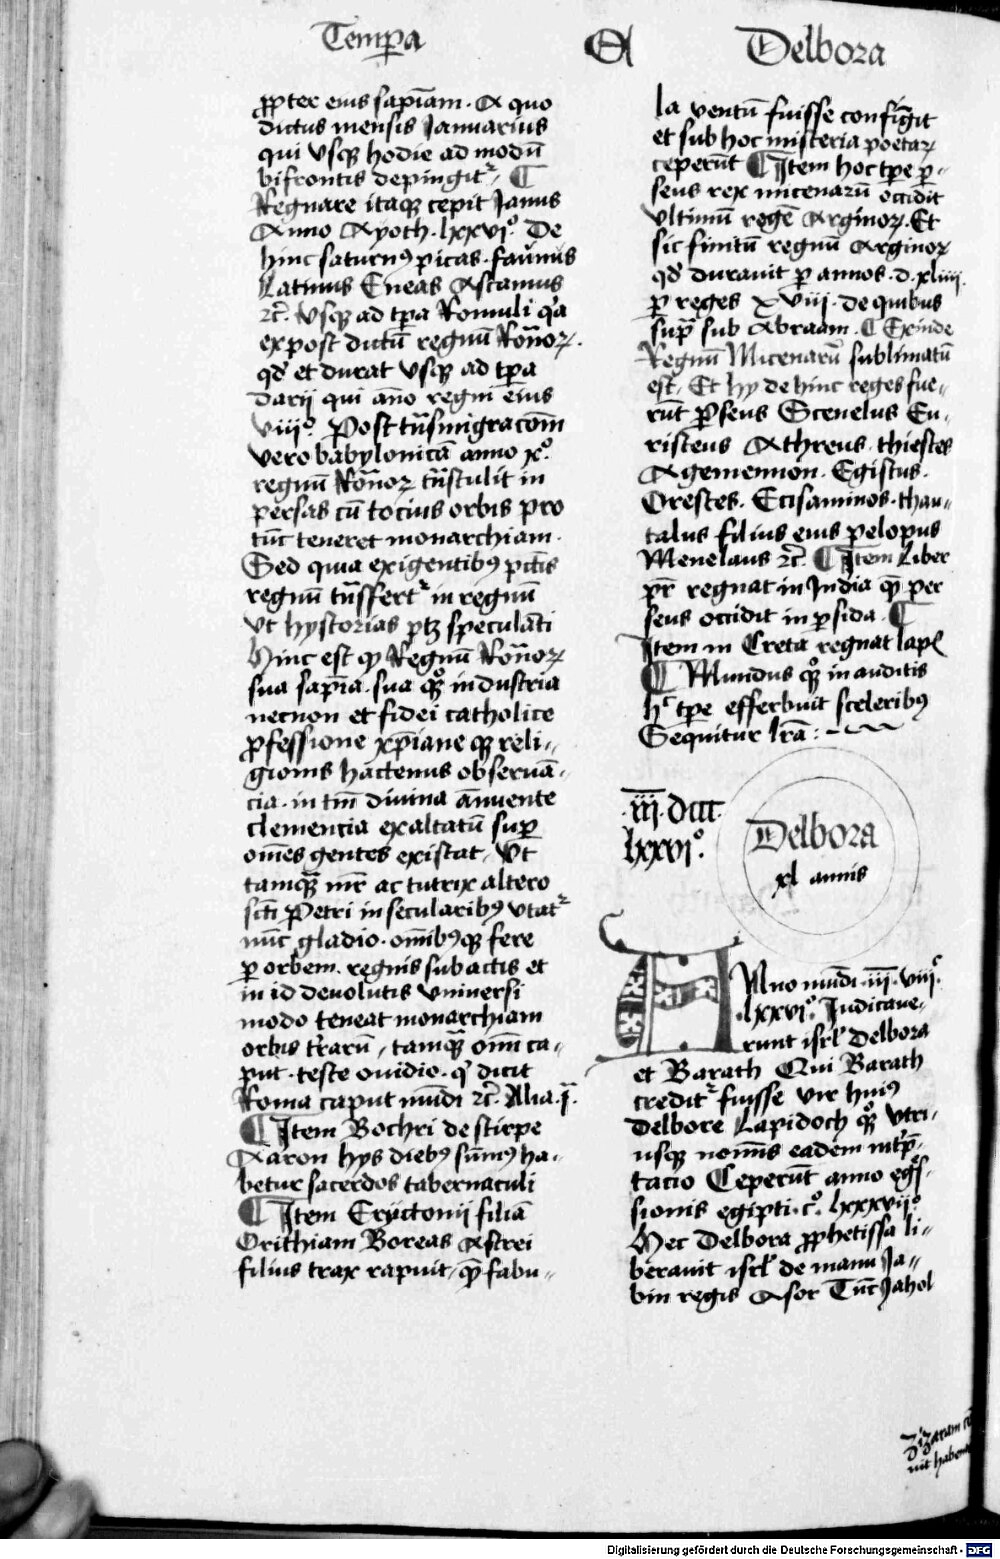 Temp̱a Et Delbora
ꝓpter eius sapiam. A quo
dictus mensis Januarius
qui vsqꝫ hodie ad modū
bifrontis depingit᷑. ¶
Regnare itaqꝫ cepit Janus
Anno Ayoth. lxxvi°. De
hinc saturnꝰ picas. faunus
Latinus Eneas Ascanius
⁊c̄. vsqꝫ ad tꝑa Romuli qͣa
ex post dictū regnū Ro̅noꝝ.
qd̓ et durat vsqꝫ ad tꝑa
darii qui an̄o regni eius
viii°. Post tn̄smigrac̄om̄
vero babylonicā anno x°.
regnū Ro̅noꝝ tn̄stulit in
persas cū tocius orbis pro
tūc teneret monarchiam.
Sed quia exigentibꝰ pc̄tis
regnū tn̄sfert᷑ in regnū
vt hystorias ptꝫ speculāti
Hinc est ꝙ Regnū Ro̅noꝝ
sua sapīa. sua qꝫ industria
necnon et fidei catholice
ꝓfessione xp̄iane qꝫ reli-
gionis hactenus obseruā-
cia. in tm̄ diuina annuente
clemencia exaltatū suꝑ
om̄es gentes existat. vt
tamqꝫ mr̄ ac tutrix altero
scti Petri in secularibꝰ vtat᷑
nūc gladio. om̄ibꝰqꝫ fere
ꝑ orbem. regnis subactis et
in id deuolutis vniuersi
modo teneat monarchiam
orbis tr̄arū, tamqꝫ om̄ ca-
put. teste ouidio. qͥ dicit
Roma caput mūdi ⁊c̄. Alia.
¶ Item Bochri de stirpe
Aaron hys diebꝰ sūmꝰ ha-
betur sacerdos tabernaculi
¶ Item Eryctonij filiā
Orithiam Boreas Astrei
filius trax rapuit, qͣ fabu-
la ventū fuisse confingit
et sub hoc misteria poetaꝝ
ceperūt ¶ Item hoc tꝑe ꝑ-
seus rex micenarū occidit
vltimū regē Arginoꝝ. Et
sic finitū regnū Arginoꝝ
qd̓ durauit ꝑ annos. d. xliiii.
ꝑ reges xviii. de quibus
supͣ sub Abraam. ¶ Exinde
Regnū Micenarū sublimatū
est. Et hy de hinc reges fue-
rūt Ꝑseus Scenelus Eu-
risteus Athreus. thiestes
Agemennon. Egistus.
Orestes. Ecisaminos. than-
talus filius eius pelopus
Menelaus ⁊c̄. ¶ Item Liber
pr̄ regnat in India quē per
seus occidit in ꝑsida. ¶
Item in Creta regnat lapꝭ
¶ Mundus qꝫ in auditis
hͦ tꝑe efferbuit sceleribꝰ
Sequitur lr̄a:
.iii. dccc.
lxxvi°.
Delbora
xl annis
Anno mūdi. iii. viii.ͨ
.lxxvi°. Iudicaue-
runt isrl̓ Delbora
et Barath Qui Barath
credit᷑ fuisse vir huiꝰ
Delbore Lapidoch qꝫ vtri-
usqꝫ nomīs eadem int̓p̄-
tacio Ceperūt anno eg̓s-
sionis egipti. c°. lxxxvii°
Hec Delbora ꝓphetissa li-
berauit isrl̓ de manu Ja-
bin regis Asor Tūc Jahol